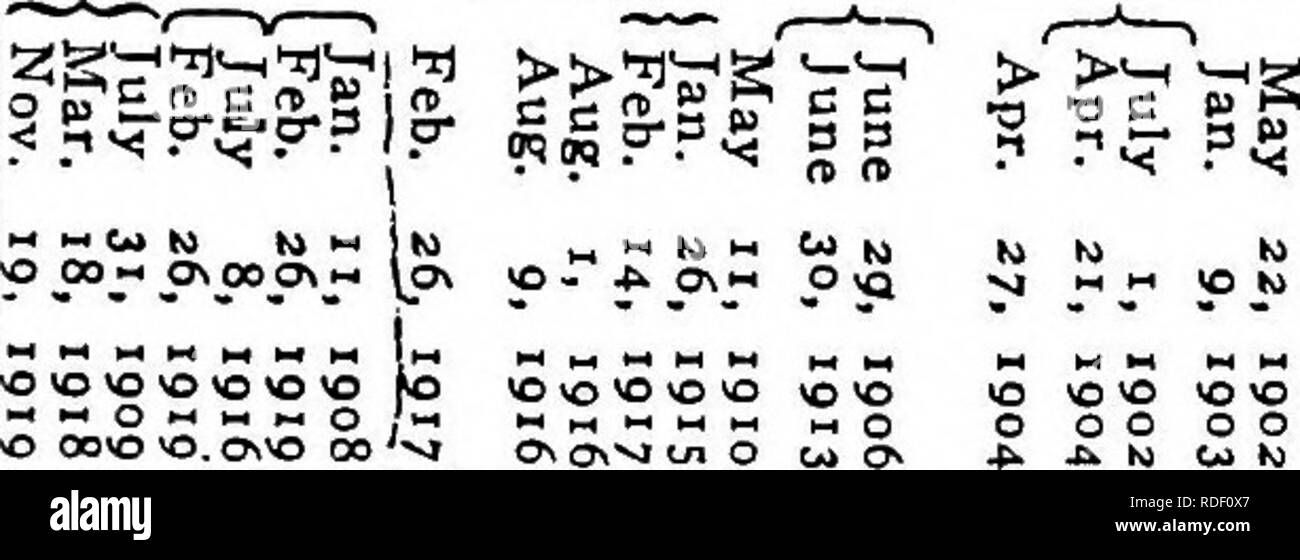 May 22, 1902
Jan. 9, 1903
July 1, 1902
Apr. 21, 1904
Apr. 27, 1904
June 29, 1906
June 30, 1913
May 11, 1910
Jan. 26, 1915
Feb. 14, 1917
Aug. 1, 1916
Aug. 9, 1916
Feb. 26, 1917
Jan. 11, 1908
Feb. 26, 1919
July 8, 1916
Feb. 26, 1919.
July 31, 1909
Mar. 18, 1918
Nov. 19, 1919
alamy
Image ID: RDF0X7
www.alamy.com